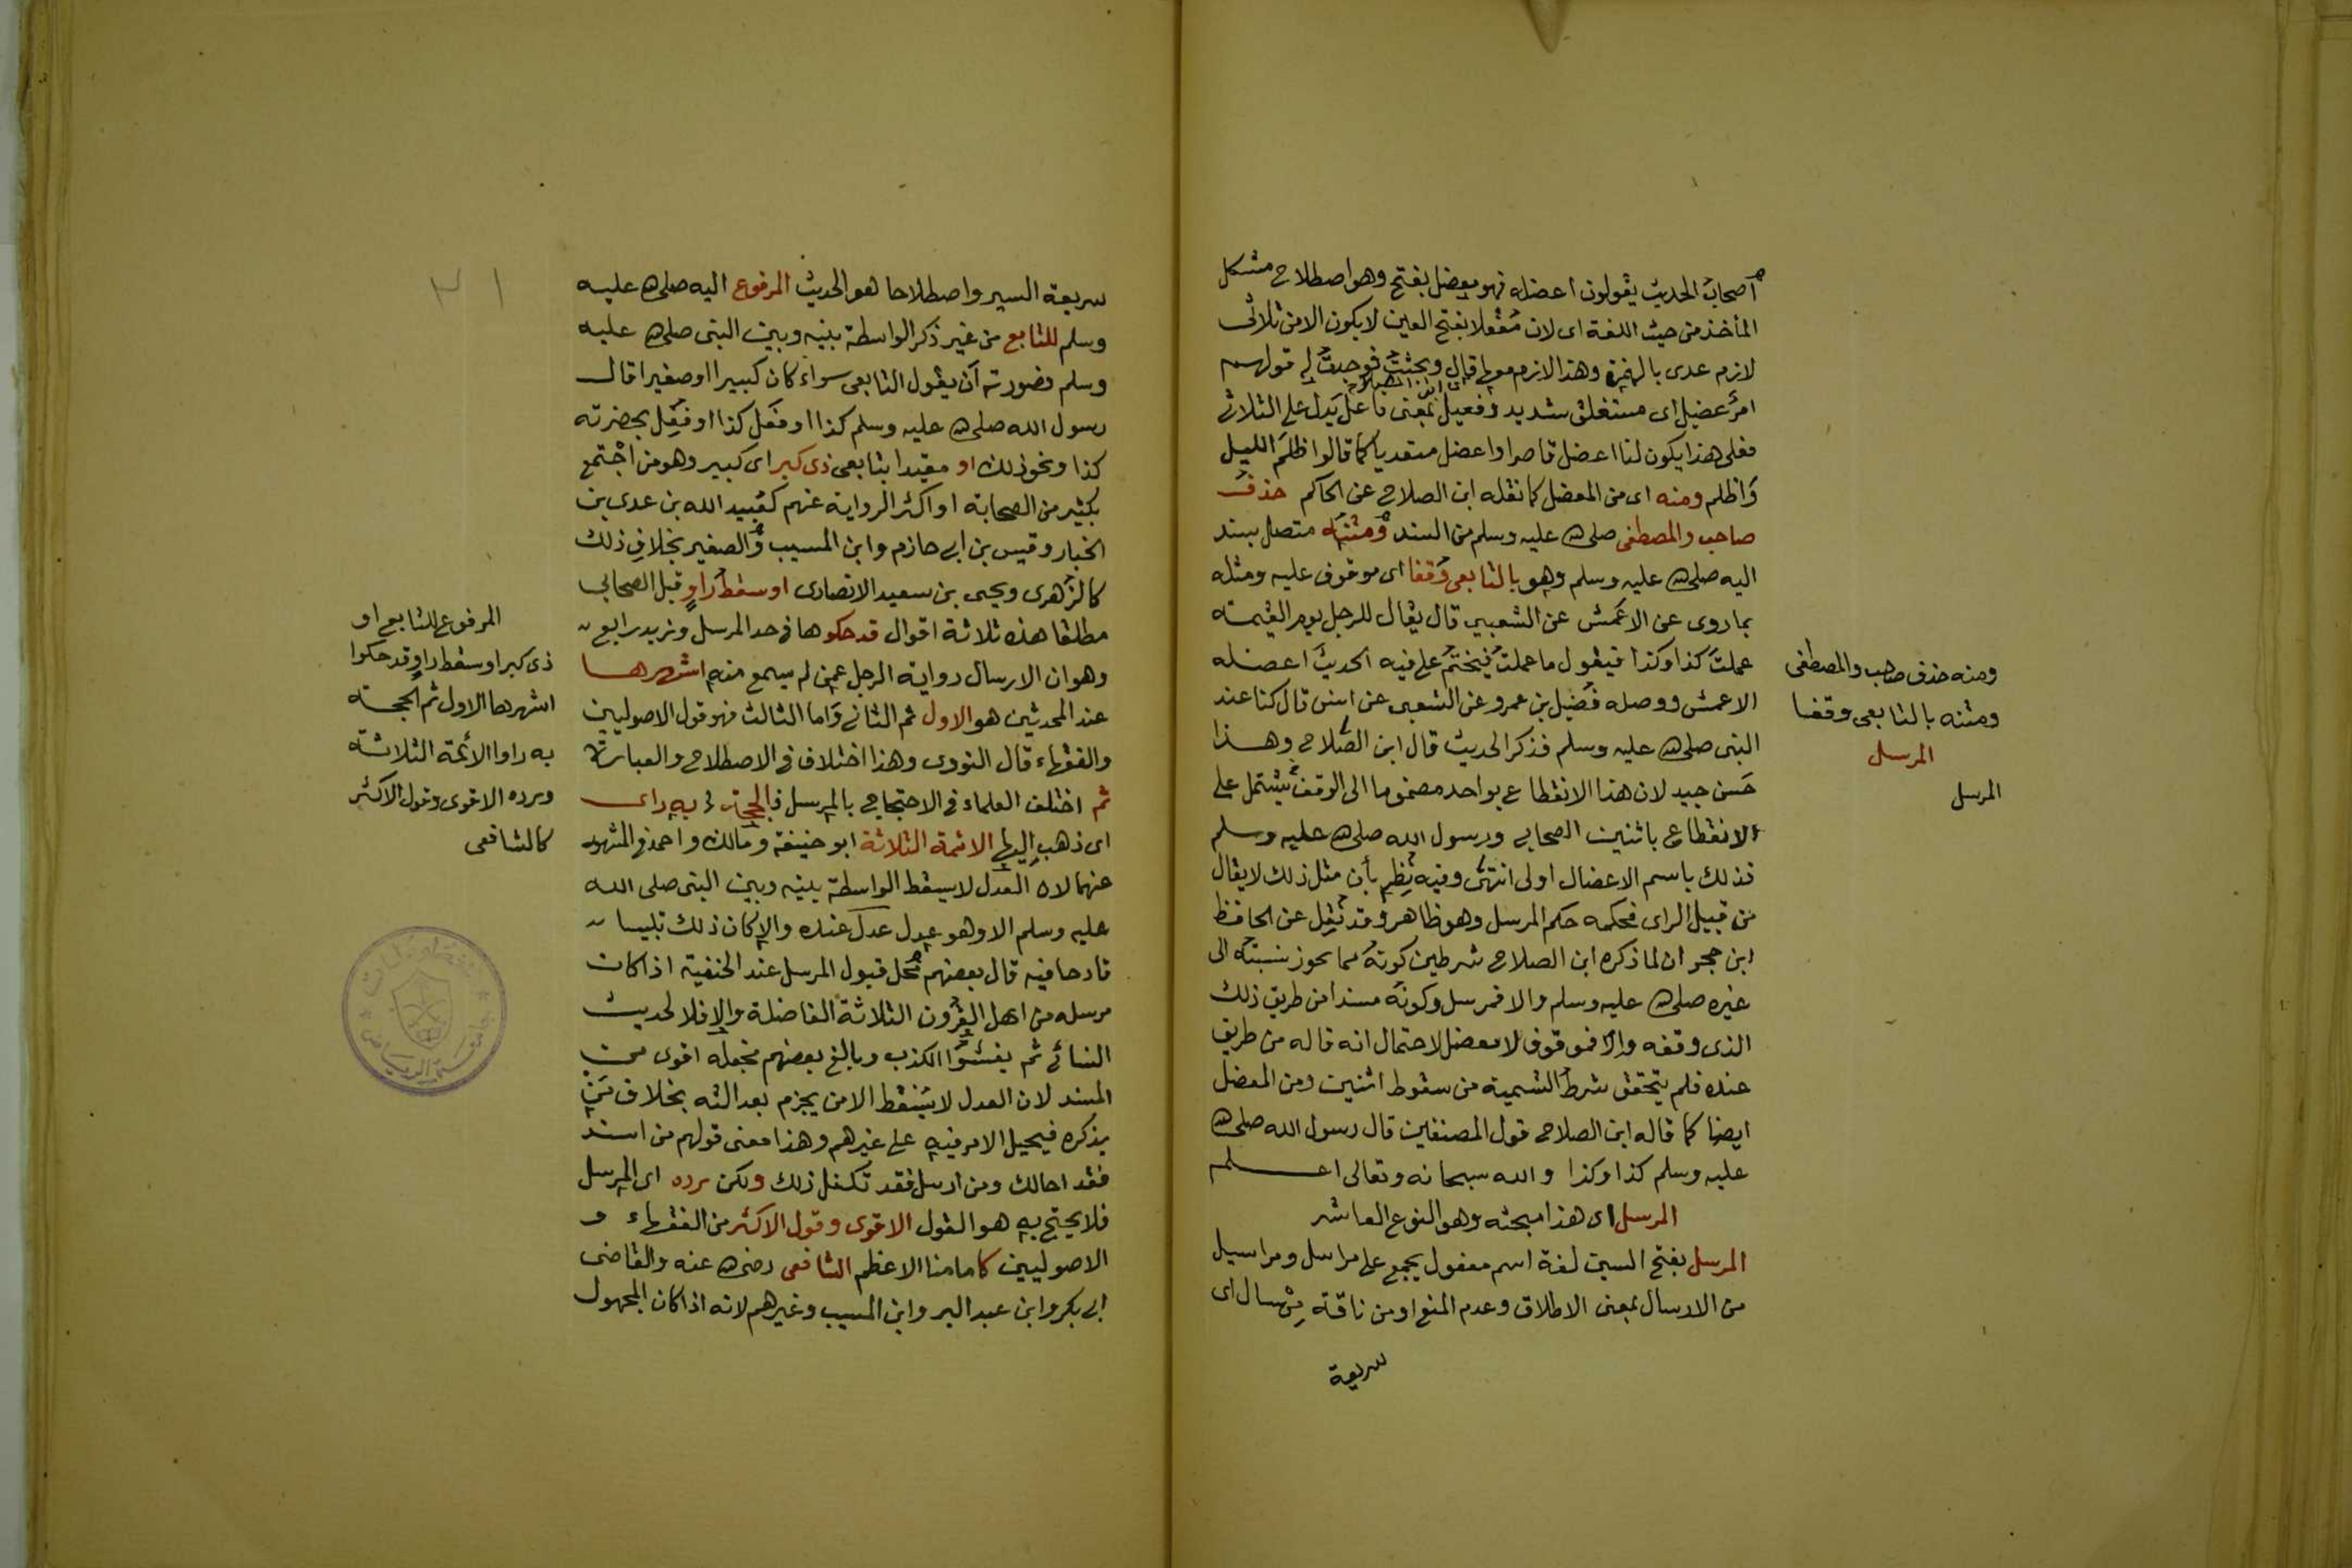 أصحاب الحديث يقولون اعضله فهو معضل بفتح وهو اصطلاح مشكل
المأخذ من حيث اللغة اى لان مُفْعلا بفتح العين لا يكون الا من ثلاثى
لازم عدى بالهمزة وهذا لازم معها قال وبحثت فوجدت له قولهم
اى ابن الصلاح
امر عضيل اى مستغلق شديد وفعيل بمعنى فاعل يدل على الثلاثى
فعلى هذا يكون لنا اعضل قاصرا واعضل متعديا كما قالوا ظلم الليل
وَاظلم ومنه اى من المعضل كما نقله ابن الصلاح عن الحاكم حذف
صاحب والمصطفى صلى الله عليه وسلم من السند ومتنه متصل بسند
اليه صلى الله عليه وسلم وهو بالتابعى وَقفا اى موقوف عليه ومثله
بما روى عن الاعمش عن الشعبي قال يقال للرجل يوم القيمة
عملتَ كذا وكذا فيقول ما عملت فيختم على فيه الحديث اعضله
الاعمش ووصله فضيل بن عمرو عن الشعبى عن انس قال كنا عند
النبى صلى الله عليه وسلم فذكر الحديث قال ابن الصلاح وهذا
حَسن جيد لان هذا الانقطاع بواحد مضموما الى الوقف يشتمل على
الانقطاع باثنين الصحابى ورسول الله صلى الله عليه وسلم
فذلك باسم الاعضال اولى انتهى وفيه نظر بأن مثل ذلك لا يقال
من قبيل الراى فحكمه حكم المرسل وهو ظاهر وقد نقل عن الحافظ
ابن حجر ان لما ذكره ابن الصلاح شرطين كونه مما يجوز نسبته الى
غيره صلى الله عليه وسلم والا فمرسل وكونه مسندا من طريق ذلك
الذى وقفه والا فموقوف لا معضل لاحتمال انه قاله من طريق
عنده فلم يتحقق شرط التسمية من سقوط اثنين ومن المعضل
ايضا كما قاله ابن الصلاح قول المصنفين قال رسول الله صلى الله
عليه وسلم كذا وكذا والله سبحانه وتعالى اعلم
المرسل اى هذا مبحثه وهو النوع العاشر
المرسل بفتح السين لغة اسم مفعول يجمع على مراسل ومراسيل
من الارسال بمعنى الاطلاق وعدم المنع او من ناقة مِرْسال اى
سريعة
ومنه حذف صاحب والمصطفى
ومتنه بالتابعى وقفا
المرسل
المرسل
٣١
سريعة السير واصطلاحا هو الحديث المرفوع اليه صلى الله عليه
وسلم للتابع من غير ذكر الواسطة بينه وبين النبى صلى الله عليه
وسلم فصورته أن يقول التابعى سواء كان كبيرا او صغيرا قال
رسول الله صلى الله عليه وسلم كذا او فعَل كذا او فُعِل بحضرته
كذا ونحو ذلك او مقيدا بتابعى ذى كبر اى كبير وهو من اجْتمع
بكثير من الصحابة او اكثر الرواية عنهم كعُبيد الله بن عدى بن
الخيار وقيس بن ابى حازم وابن المسيب والصغير بخلاف ذلك
كالزهرى ويحيى بن سعيد الانصارى او سقط راوٍ قبل الصحابى
مطلقا هذه ثلاثة اقوال قد حكوها فى حد المرسل ونزيد رابع
وهو ان الارسال رواية الرجل عمن لم يسمع منه اشهرها
عند المحدثين هو الاول ثم الثانى وَاما الثالث فهو قول الاصوليين
والفقهاء قال النووى وهذا اختلاف فى الاصطلاح والعبارة
ثم اختلف العلماء فى الاحتجاج بالمرسل فالحجة به راى
اى ذهب اليها الائمة الثلاثة ابو حنيفة ومالك واحمد فى المشهور
عنهما لان العدل لا يسقط الواسطة بينه وبين النبى صلى الله
عليه وسلم الا وهو عدل عنده والا كان ذلك تلبيسا
قادحا فيه قال بعضهم محل قبول المرسل عند الحنفية اذا كان
مرسله من اهل القرون الثلاثة الفاضلة والا فلا لحديث
النسائى ثم يفشوا الكذب وبالغ بعضهم فجعله اقوى من
المسند لان العدل لا يُسْقط الا من يجزم بعدالته بخلاف مَن
يذكره فيحيل الامر فيه على غيرهم وهذا معنى قولهم من اسند
فقد احالك ومن ارسل فقد تكفل ذلك ولكن رده اى المرسل
فلا يحتج به هو القول الاقوى وقول الاكثر من الفقهاء و
الاصوليين كامامنا الاعظم الشافعى رضى الله عنه والقاضى
ابى بكر وابن عبد البر وابن المسيب وغيرهم لانه اذا كان المجهول
المرفوع للتابع او
ذى كبر او سقط راوٍ قد حكوا
اشهرها الاول ثم الحجة
به راوا الأئمة الثلاثة
ورده الاقوى وقول الاكثر
كالشافعى